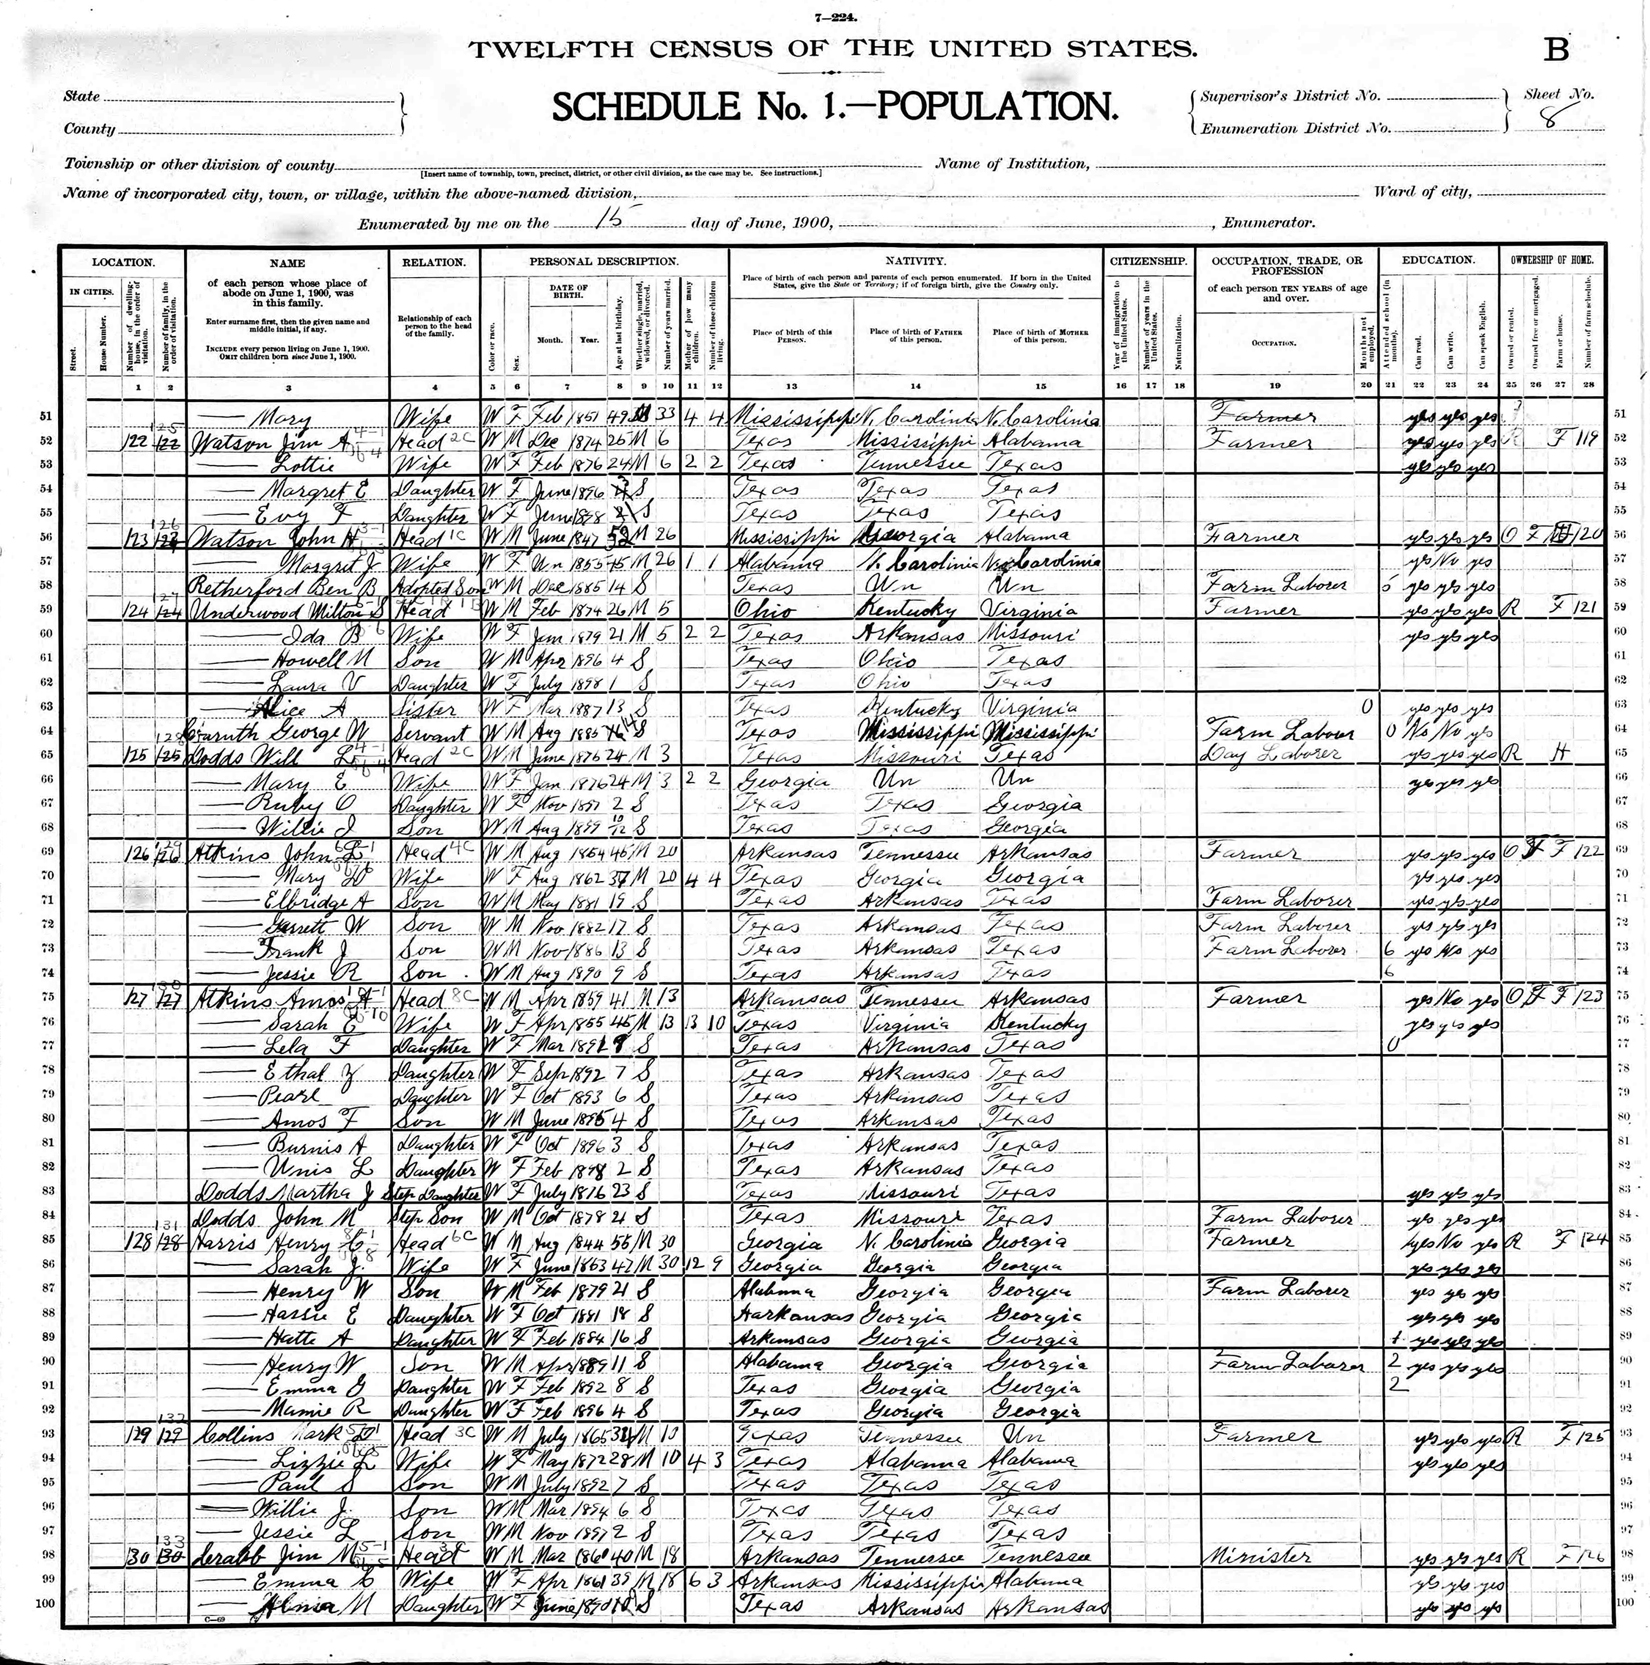 7—224.
TWELFTH CENSUS OF THE UNITED STATES.
B
State
SCHEDULE No. 1.—POPULATION.
Supervisor's District No.
Sheet No.
County
Enumeration District No.
8
Township or other division of county
[Insert name of township, town, precinct, district, or other civil division, as the case may be. See instructions.]
Name of Institution,
Name of incorporated city, town, or village, within the above-named division,
Ward of city,
Enumerated by me on the 15 day of June, 1900, , Enumerator.
LOCATION. NAME RELATION. PERSONAL DESCRIPTION. NATIVITY. CITIZENSHIP. OCCUPATION, TRADE, OR PROFESSION EDUCATION. OWNERSHIP OF HOME.
IN CITIES. Street. House Number. Number of dwelling-house, in the order of visitation. Number of family, in the order of visitation.
of each person whose place of abode on June 1, 1900, was in this family.
Enter surname first, then the given name and middle initial, if any.
INCLUDE every person living on June 1, 1900. OMIT children born since June 1, 1900.
Relationship of each person to the head of the family.
Color or race. Sex. DATE OF BIRTH. Month. Year. Age at last birthday. Whether single, married, widowed, or divorced. Number of years married. Mother of how many children. Number of these children living.
Place of birth of each person and parents of each person enumerated. If born in the United States, give the State or Territory; if of foreign birth, give the Country only.
Place of birth of this PERSON. Place of birth of FATHER of this person. Place of birth of MOTHER of this person.
Year of immigration to the United States. Number of years in the United States. Naturalization.
of each person TEN YEARS of age and over.
OCCUPATION. Months not employed. Attended school (in months). Can read. Can write. Can speak English. Owned or rented. Owned free or mortgaged. Farm or house. Number of farm schedule.
1 2 3 4 5 6 7 8 9 10 11 12 13 14 15 16 17 18 19 20 21 22 23 24 25 26 27 28
51 Mary Wife W F Feb 1851 49 M 33 4 4 Mississippi N. Carolina N. Carolina Farmer yes yes yes 51
52 122 Watson Jim A Head W M Dec 1874 25 M 6 Texas Mississippi Alabama Farmer yes yes yes R F 119 52
53 Lottie Wife W F Feb 1876 24 M 6 2 2 Texas Tennessee Texas yes yes yes 53
54 Margret E Daughter W F June 1896 S Texas Texas Texas 54
55 Evy F Daughter W F June 1898 S Texas Texas Texas 55
56 123 Watson John H Head W M June 1847 52 M 26 Mississippi Georgia Alabama Farmer yes yes yes O F 120 56
57 Margret J Wife W F Un 1855 45 M 26 1 1 Alabama N. Carolina N. Carolina yes No yes 57
58 Retherford Ben B Adopted Son W M Dec 1885 14 S Texas Un Un Farm Laborer 5 yes yes yes 58
59 124 124 Underwood Milton S Head W M Feb 1874 26 M 5 Ohio Kentucky Virginia Farmer yes yes yes R F 121 59
60 Ida B Wife W F Jan 1879 21 M 5 2 2 Texas Arkansas Missouri yes yes yes 60
61 Howell N Son W M Apr 1896 4 S Texas Ohio Texas 61
62 Laura V Daughter W F July 1898 1 S Texas Ohio Texas 62
63 Alice A Sister W F Mar 1887 13 S Texas Kentucky Virginia 0 yes yes yes 63
64 George W Servant W M Aug 1885 14 S Texas Mississippi Mississippi Farm Labour 0 No No yes 64
65 125 125 Dodds Will L Head W M June 1876 24 M 3 Texas Missouri Texas Day Laborer yes yes yes R H 65
66 Mary E Wife W F Jan 1876 24 M 3 2 2 Georgia Un Un yes yes yes 66
67 Ruby O Daughter W F Nov 1897 2 S Texas Texas Georgia 67
68 Willie J Son W M Aug 1899 10/12 S Texas Texas Georgia 68
69 126 126 Atkins John L Head W M Aug 1854 45 M 20 Arkansas Tennessee Arkansas Farmer yes yes yes O F F 122 69
70 Mary W Wife W F Aug 1862 37 M 20 4 4 Texas Georgia Georgia yes yes yes 70
71 Elbridge A Son W M May 1881 19 S Texas Arkansas Texas Farm Laborer yes yes yes 71
72 Garrett W Son W M Nov 1882 17 S Texas Arkansas Texas Farm Laborer yes yes yes 72
73 Frank J Son W M Nov 1886 13 S Texas Arkansas Texas Farm Laborer 6 yes No yes 73
74 Jessie R Son W M Aug 1890 9 S Texas Arkansas Texas 6 74
75 127 127 Atkins Amos A Head W M Apr 1859 41 M 13 Arkansas Tennessee Arkansas Farmer yes No yes O F F 123 75
76 Sarah E Wife W F Apr 1855 45 M 13 13 10 Texas Virginia Kentucky yes yes yes 76
77 Lela F Daughter W F Mar 1891 S Texas Arkansas Texas 0 77
78 Ethal Z Daughter W F Sep 1892 7 S Texas Arkansas Texas 78
79 Pearl Daughter W F Oct 1893 6 S Texas Arkansas Texas 79
80 Amos F Son W M June 1895 4 S Texas Arkansas Texas 80
81 Burnis A Daughter W F Oct 1896 3 S Texas Arkansas Texas 81
82 Unis L Daughter W F Feb 1898 2 S Texas Arkansas Texas 82
83 Dodds Martha J Step Daughter W F July 1876 23 S Texas Missouri Texas yes yes yes 83
84 Dodds John M Step Son W M Oct 1878 21 S Texas Missouri Texas Farm Laborer yes yes yes 84
85 128 128 Harris Henry C Head W M Aug 1844 55 M 30 Georgia N. Carolina Georgia Farmer yes No yes R F 124 85
86 Sarah J. Wife W F June 1853 47 M 30 12 9 Georgia Georgia Georgia yes yes yes 86
87 Henry W Son W M Feb 1879 21 S Alabama Georgia Georgia Farm Laborer yes yes yes 87
88 Hassie E Daughter W F Oct 1881 18 S Harkansas Georgia Georgia yes yes yes 88
89 Hatte A Daughter W F Feb 1884 16 S Arkansas Georgia Georgia yes yes yes 89
90 Henry W Son W M Apr 1889 11 S Alabama Georgia Georgia Farm Laborer 2 yes yes yes 90
91 Emma G Daughter W F Feb 1892 8 S Texas Georgia Georgia 2 91
92 Mamie R Daughter W F Feb 1896 4 S Texas Georgia Georgia 92
93 129 129 Collins Mark D Head W M July 1865 34 M 10 Texas Tennessee Un Farmer yes yes yes R F 125 93
94 Lizzie L Wife W F May 1872 28 M 10 4 3 Texas Alabama Alabama yes yes yes 94
95 Paul S Son W M July 1892 7 S Texas Texas Texas 95
96 Willie J. Son W M Mar 1894 6 S Texas Texas Texas 96
97 Jessie L Son W M Nov 1897 2 S Texas Texas Texas 97
98 130 130 Crabb Jim M Head W M Mar 1860 40 M 18 Arkansas Tennessee Tennessee Minister yes yes yes R F 126 98
99 Emma C Wife W F Apr 1861 39 M 18 6 3 Arkansas Mississippi Alabama yes yes yes 99
100 Alma M Daughter W F June S Texas Arkansas Arkansas yes yes yes 100